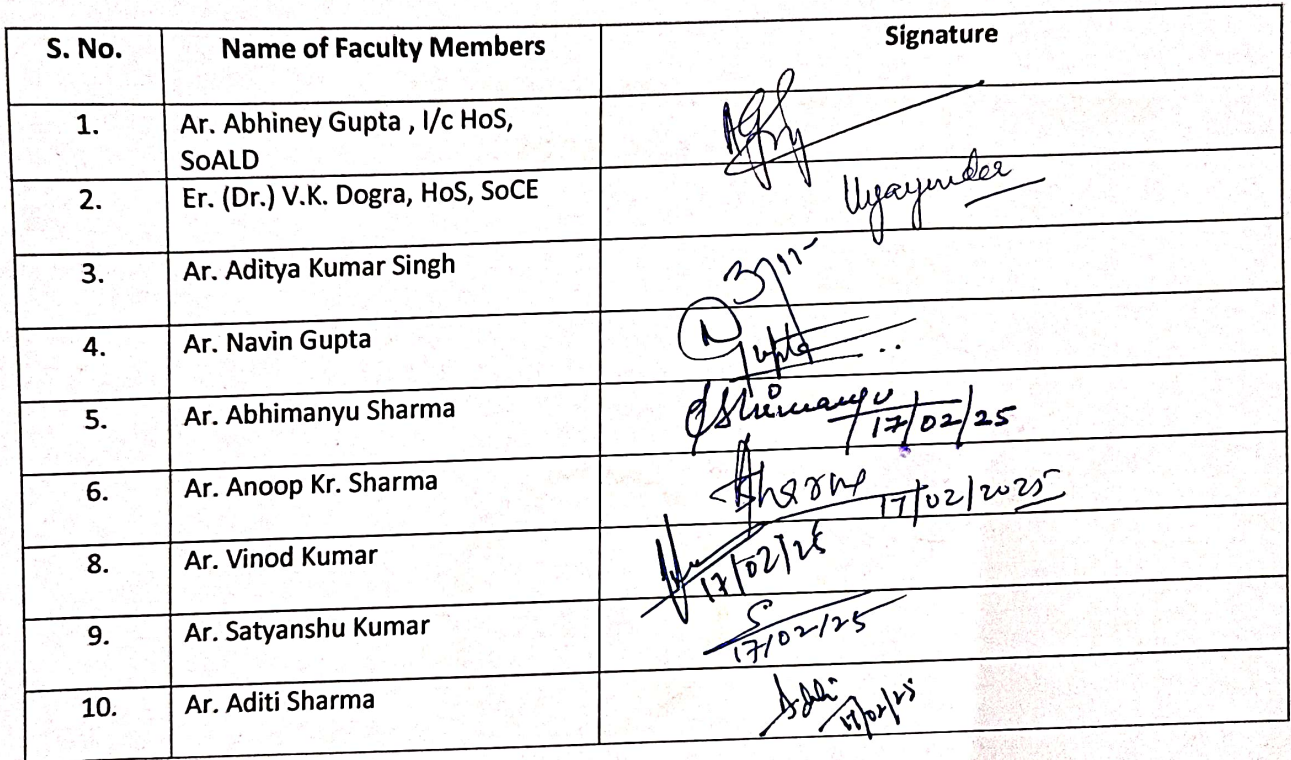 S. No. Name of Faculty Members Signature
1. Ar. Abhiney Gupta , I/c HoS,
SoALD
2. Er. (Dr.) V.K. Dogra, HoS, SoCE
3. Ar. Aditya Kumar Singh
4. Ar. Navin Gupta N Gupta
5. Ar. Abhimanyu Sharma Abhimanyu 17/02/25
6. Ar. Anoop Kr. Sharma Sharma 17/02/2025
8. Ar. Vinod Kumar 17/02/25
9. Ar. Satyanshu Kumar S 17/02/25
10. Ar. Aditi Sharma Aditi 17/02/25